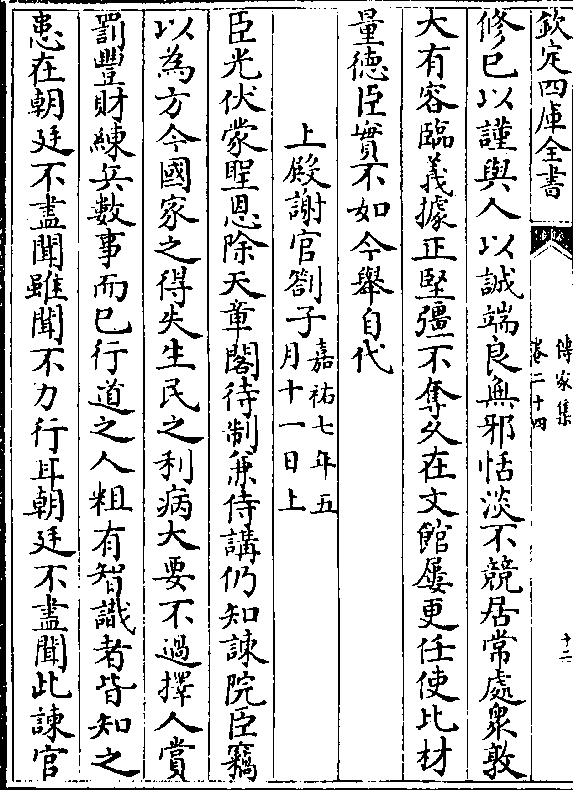 欽定四庫全書
傳家集
卷二十四
十二
修己以謹與人以誠端良無邪恬淡不競居常處衆敦
大有容臨義據正堅彊不奪久在文館屡更任使比材
量德臣實不如今舉自代
上殿謝官劄子嘉祐七年五
月十一日上
臣光伏蒙聖恩除天章閣待制兼侍講仍知諫院臣竊
以為方今國家之得失生民之利病大要不過擇人賞
罰豐財練兵數事而已行道之人粗有智識者皆知之
患在朝廷不盡聞雖聞不力行耳朝廷不盡聞此諫官